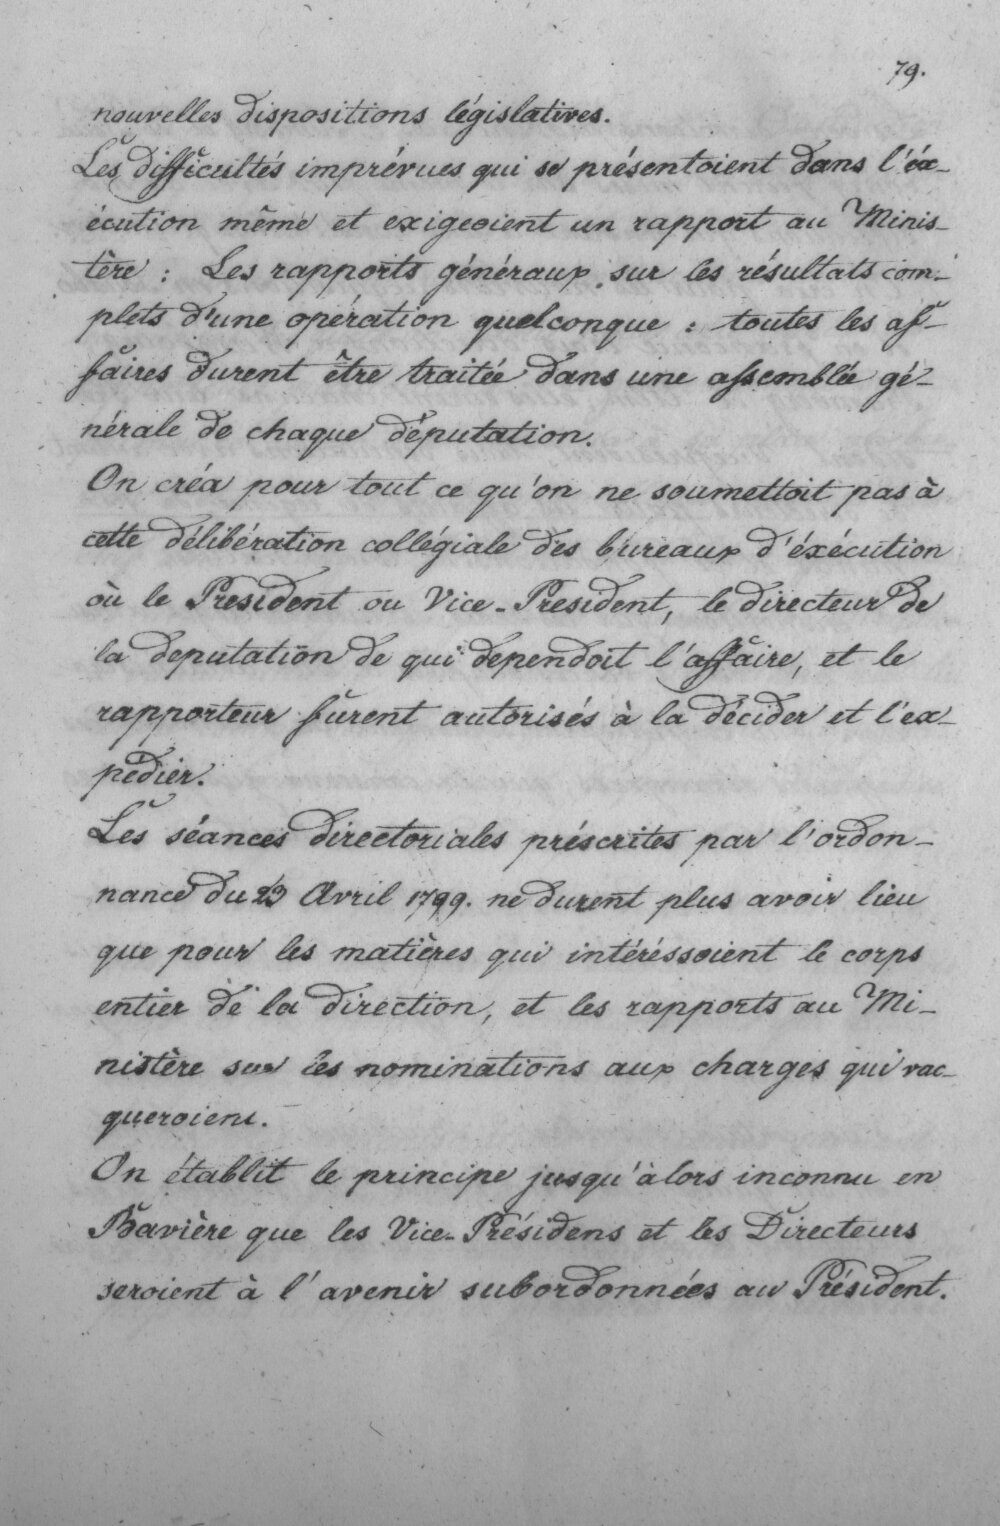 79.
nouvelles dispositions législatives.
Les difficultés imprévues qui se présentoient dans l'éx-
écution même et exigeoient un rapport au Minis-
tère : Les rapports généraux sur les résultats com-
plets d'une opération quelconque : toutes les af-
faires durent être traitée dans une assemblée gé-
nérale de chaque députation.
On créa pour tout ce qu'on ne soumettoit pas à
cette délibération collégiale des bureaux d'éxécution
où le President ou Vice-President, le directeur de
la deputation de qui dependoit l'affaire, et le
rapporteur furent autorisés à la décider et l'ex-
pédier.
Les séances directoriales préscrites par l'ordon-
nance du 23 Avril 1799. ne durent plus avoir lieu
que pour les matières qui intéréssoient le corps
entier de la direction, et les rapports au Mi-
nistère sur les nominations aux charges qui vac-
queroient.
On établit le principe jusqu'àlors inconnu en
Bavière que les Vice-Présidens et les Directeurs
seroient à l'avenir subordonnées au Président.